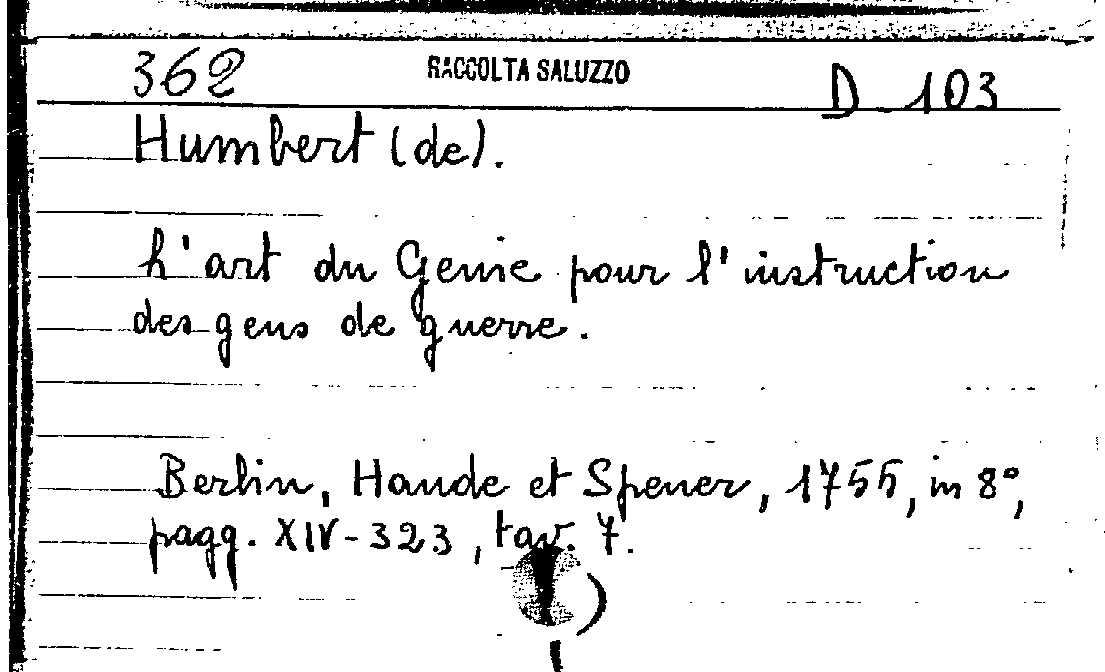 362 RACCOLTA SALUZZO D 103
Humbert (de).
L'art du Genie pour l'instruction
des gens de guerre.
Berlin, Haude et Spener, 1755, in 8°,
pagg. XIV-323, tav. 7.